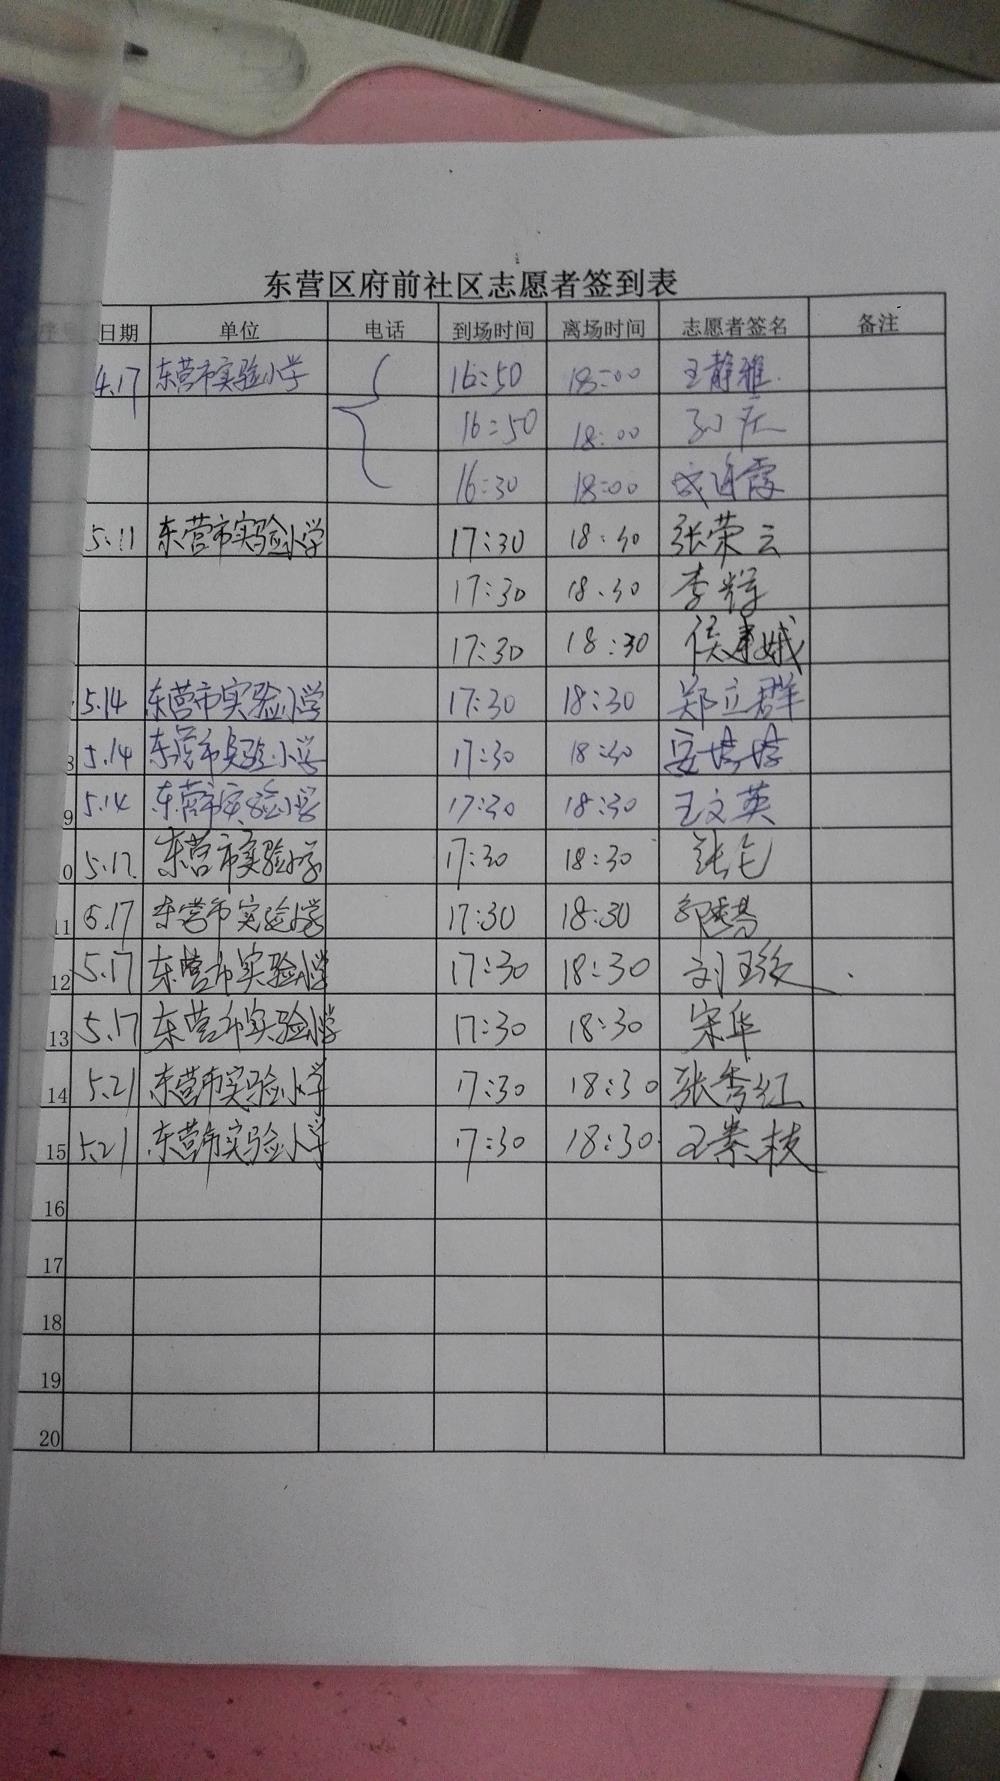 东营区府前社区志愿者签到表
序号 日期 单位 电话 到场时间 离场时间 志愿者签名 备注
4.17 东营市实验小学 16:50 18:00 王静雅
16:50 18:00
16:30 18:00 成连霞
5.11 东营市实验小学 17:30 18:30 张荣云
17:30 18:30 李辉
17:30 18:30 侯建娥
5.14 东营市实验小学 17:30 18:30 郑立群
8 5.14 东营市实验小学 17:30 18:30 安婷婷
9 5.14 东营市实验小学 17:30 18:30 王文英
0 5.17 东营市实验小学 17:30 18:30
11 5.17 东营市实验小学 17:30 18:30
12 5.17 东营市实验小学 17:30 18:30 刘玉
13 5.17 东营市实验小学 17:30 18:30 宋华
14 5.21 东营市实验小学 17:30 18:30 张秀红
15 5.21 东营市实验小学 17:30 18:30 王素枝
16
17
18
19
20